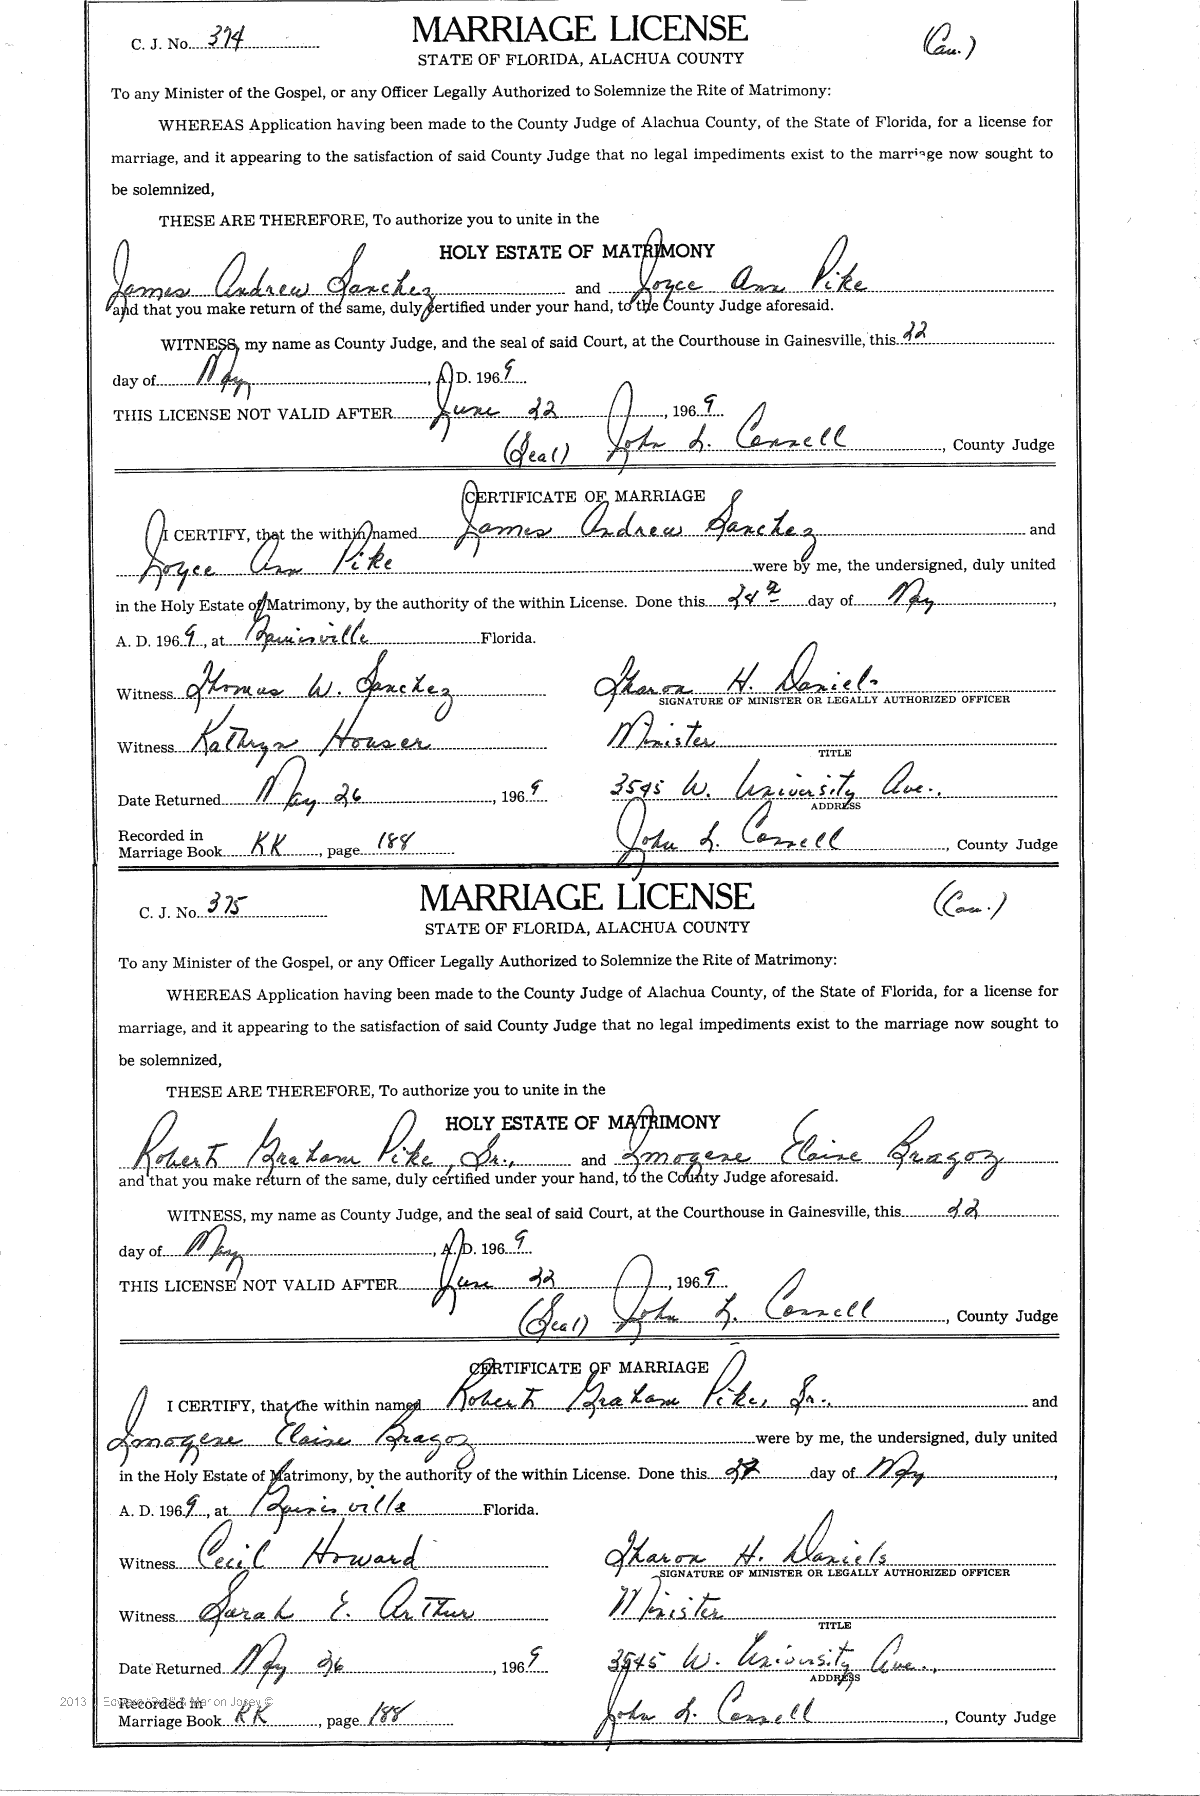 C. J. No. 374
MARRIAGE LICENSE
(Cau.)
STATE OF FLORIDA, ALACHUA COUNTY
To any Minister of the Gospel, or any Officer Legally Authorized to Solemnize the Rite of Matrimony:
WHEREAS Application having been made to the County Judge of Alachua County, of the State of Florida, for a license for
marriage, and it appearing to the satisfaction of said County Judge that no legal impediments exist to the marriage now sought to
be solemnized,
THESE ARE THEREFORE, To authorize you to unite in the
HOLY ESTATE OF MATRIMONY
James Andrew Sanchez and Joyce Ann Pike
and that you make return of the same, duly certified under your hand, to the County Judge aforesaid.
WITNESS, my name as County Judge, and the seal of said Court, at the Courthouse in Gainesville, this 22
day of May, A. D. 1969.
THIS LICENSE NOT VALID AFTER June 22, 1969
(Seal) John L. Connell, County Judge
CERTIFICATE OF MARRIAGE
I CERTIFY, that the within named James Andrew Sanchez and
Joyce Ann Pike were by me, the undersigned, duly united
in the Holy Estate of Matrimony, by the authority of the within License. Done this 24 day of May,
A. D. 1969, at Gainesville Florida.
Witness Thomas W. Sanchez Sharon H. Daniels
SIGNATURE OF MINISTER OR LEGALLY AUTHORIZED OFFICER
Witness Kathryn Houser Minister
TITLE
Date Returned May 26, 1969 3545 W. University Ave.
ADDRESS
Recorded in
Marriage Book KK, page 188 John L. Connell, County Judge
C. J. No. 375
MARRIAGE LICENSE
(Cau.)
STATE OF FLORIDA, ALACHUA COUNTY
To any Minister of the Gospel, or any Officer Legally Authorized to Solemnize the Rite of Matrimony:
WHEREAS Application having been made to the County Judge of Alachua County, of the State of Florida, for a license for
marriage, and it appearing to the satisfaction of said County Judge that no legal impediments exist to the marriage now sought to
be solemnized,
THESE ARE THEREFORE, To authorize you to unite in the
HOLY ESTATE OF MATRIMONY
Robert Graham Pike, Sr., and Imogene Elaine Bragoz
and that you make return of the same, duly certified under your hand, to the County Judge aforesaid.
WITNESS, my name as County Judge, and the seal of said Court, at the Courthouse in Gainesville, this 22
day of May, A. D. 1969.
THIS LICENSE NOT VALID AFTER June 22, 1969
(Seal) John L. Connell, County Judge
CERTIFICATE OF MARRIAGE
I CERTIFY, that the within named Robert Graham Pike, Sr., and
Imogene Elaine Bragoz were by me, the undersigned, duly united
in the Holy Estate of Matrimony, by the authority of the within License. Done this day of May,
A. D. 1969, at Gainesville Florida.
Witness Cecil Howard Sharon H. Daniels
SIGNATURE OF MINISTER OR LEGALLY AUTHORIZED OFFICER
Witness Sarah E. Arthur Minister
TITLE
Date Returned May 26, 1969 3545 W. University Ave.,
ADDRESS
2013
Recorded in
Marriage Book KK, page 188 John L. Connell, County Judge